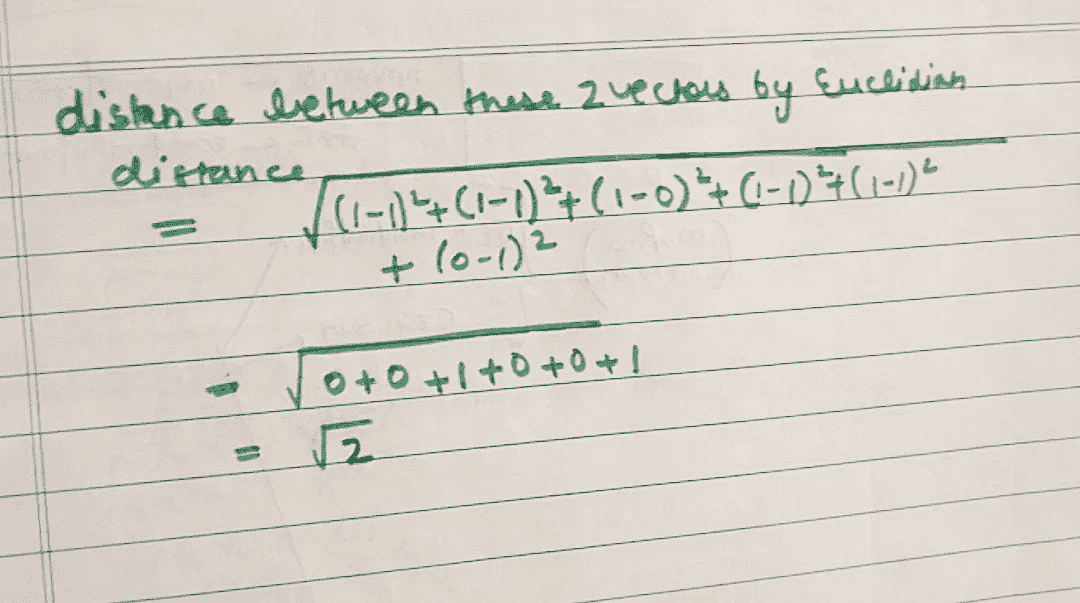 distance between these 2 vectors by Euclidian
distance
= √((1-1)²+(1-1)²+(1-0)²+(1-1)²+(1-1)²
+ (0-1)²
= √0+0+1+0+0+1
= √2